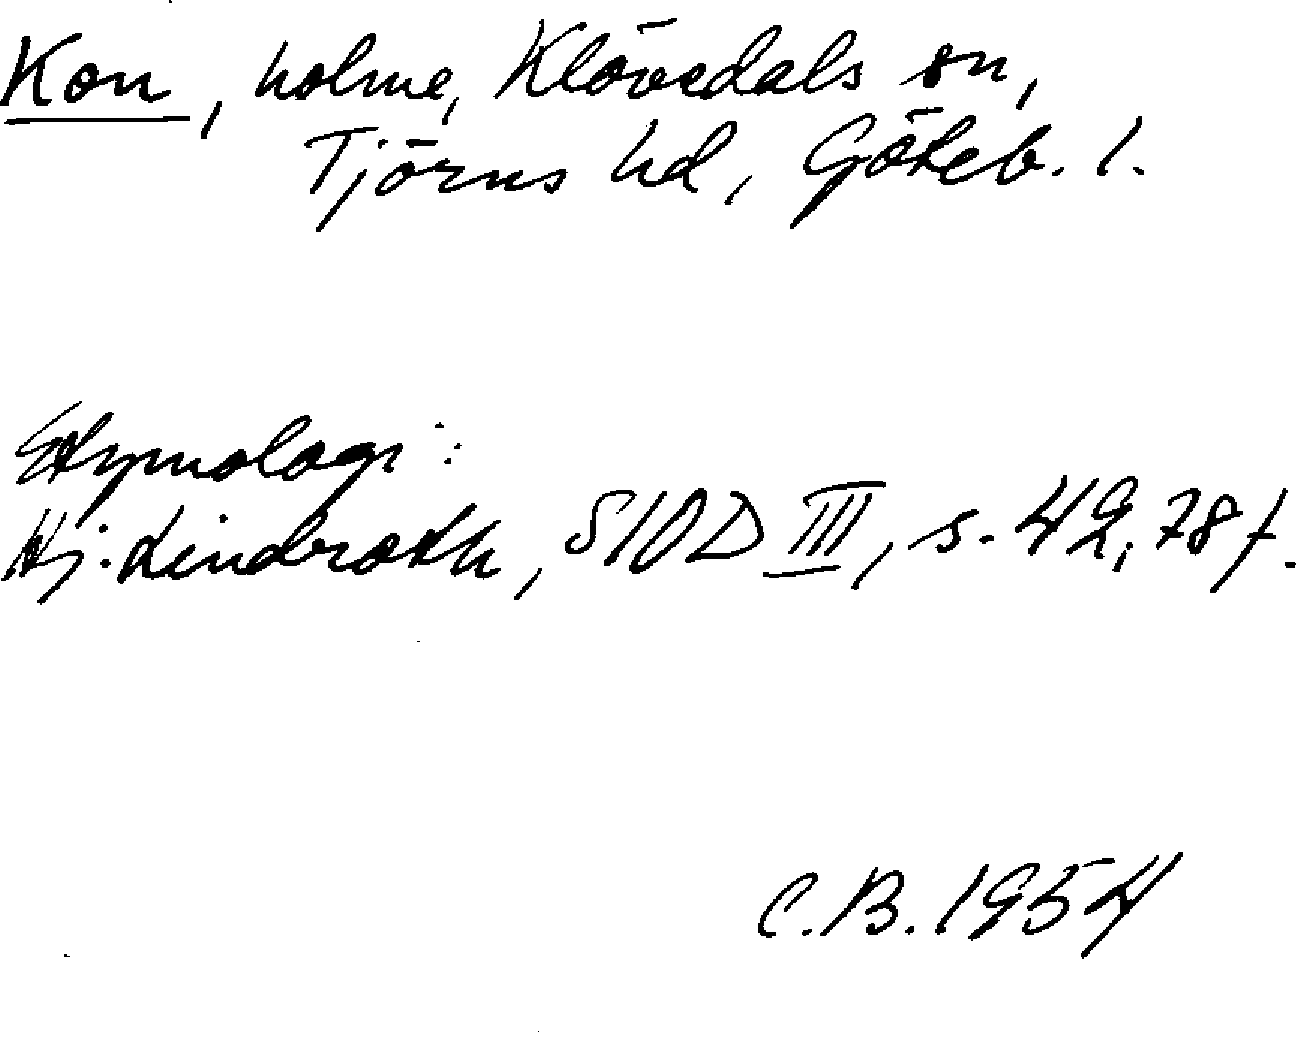 Kon, holme, Klövedals sn,
Tjörns hd, Göteb. l.
Etymologi:
Hj. Lindroth, SIOD III, s. 42, 78 f.
C.B. 1954